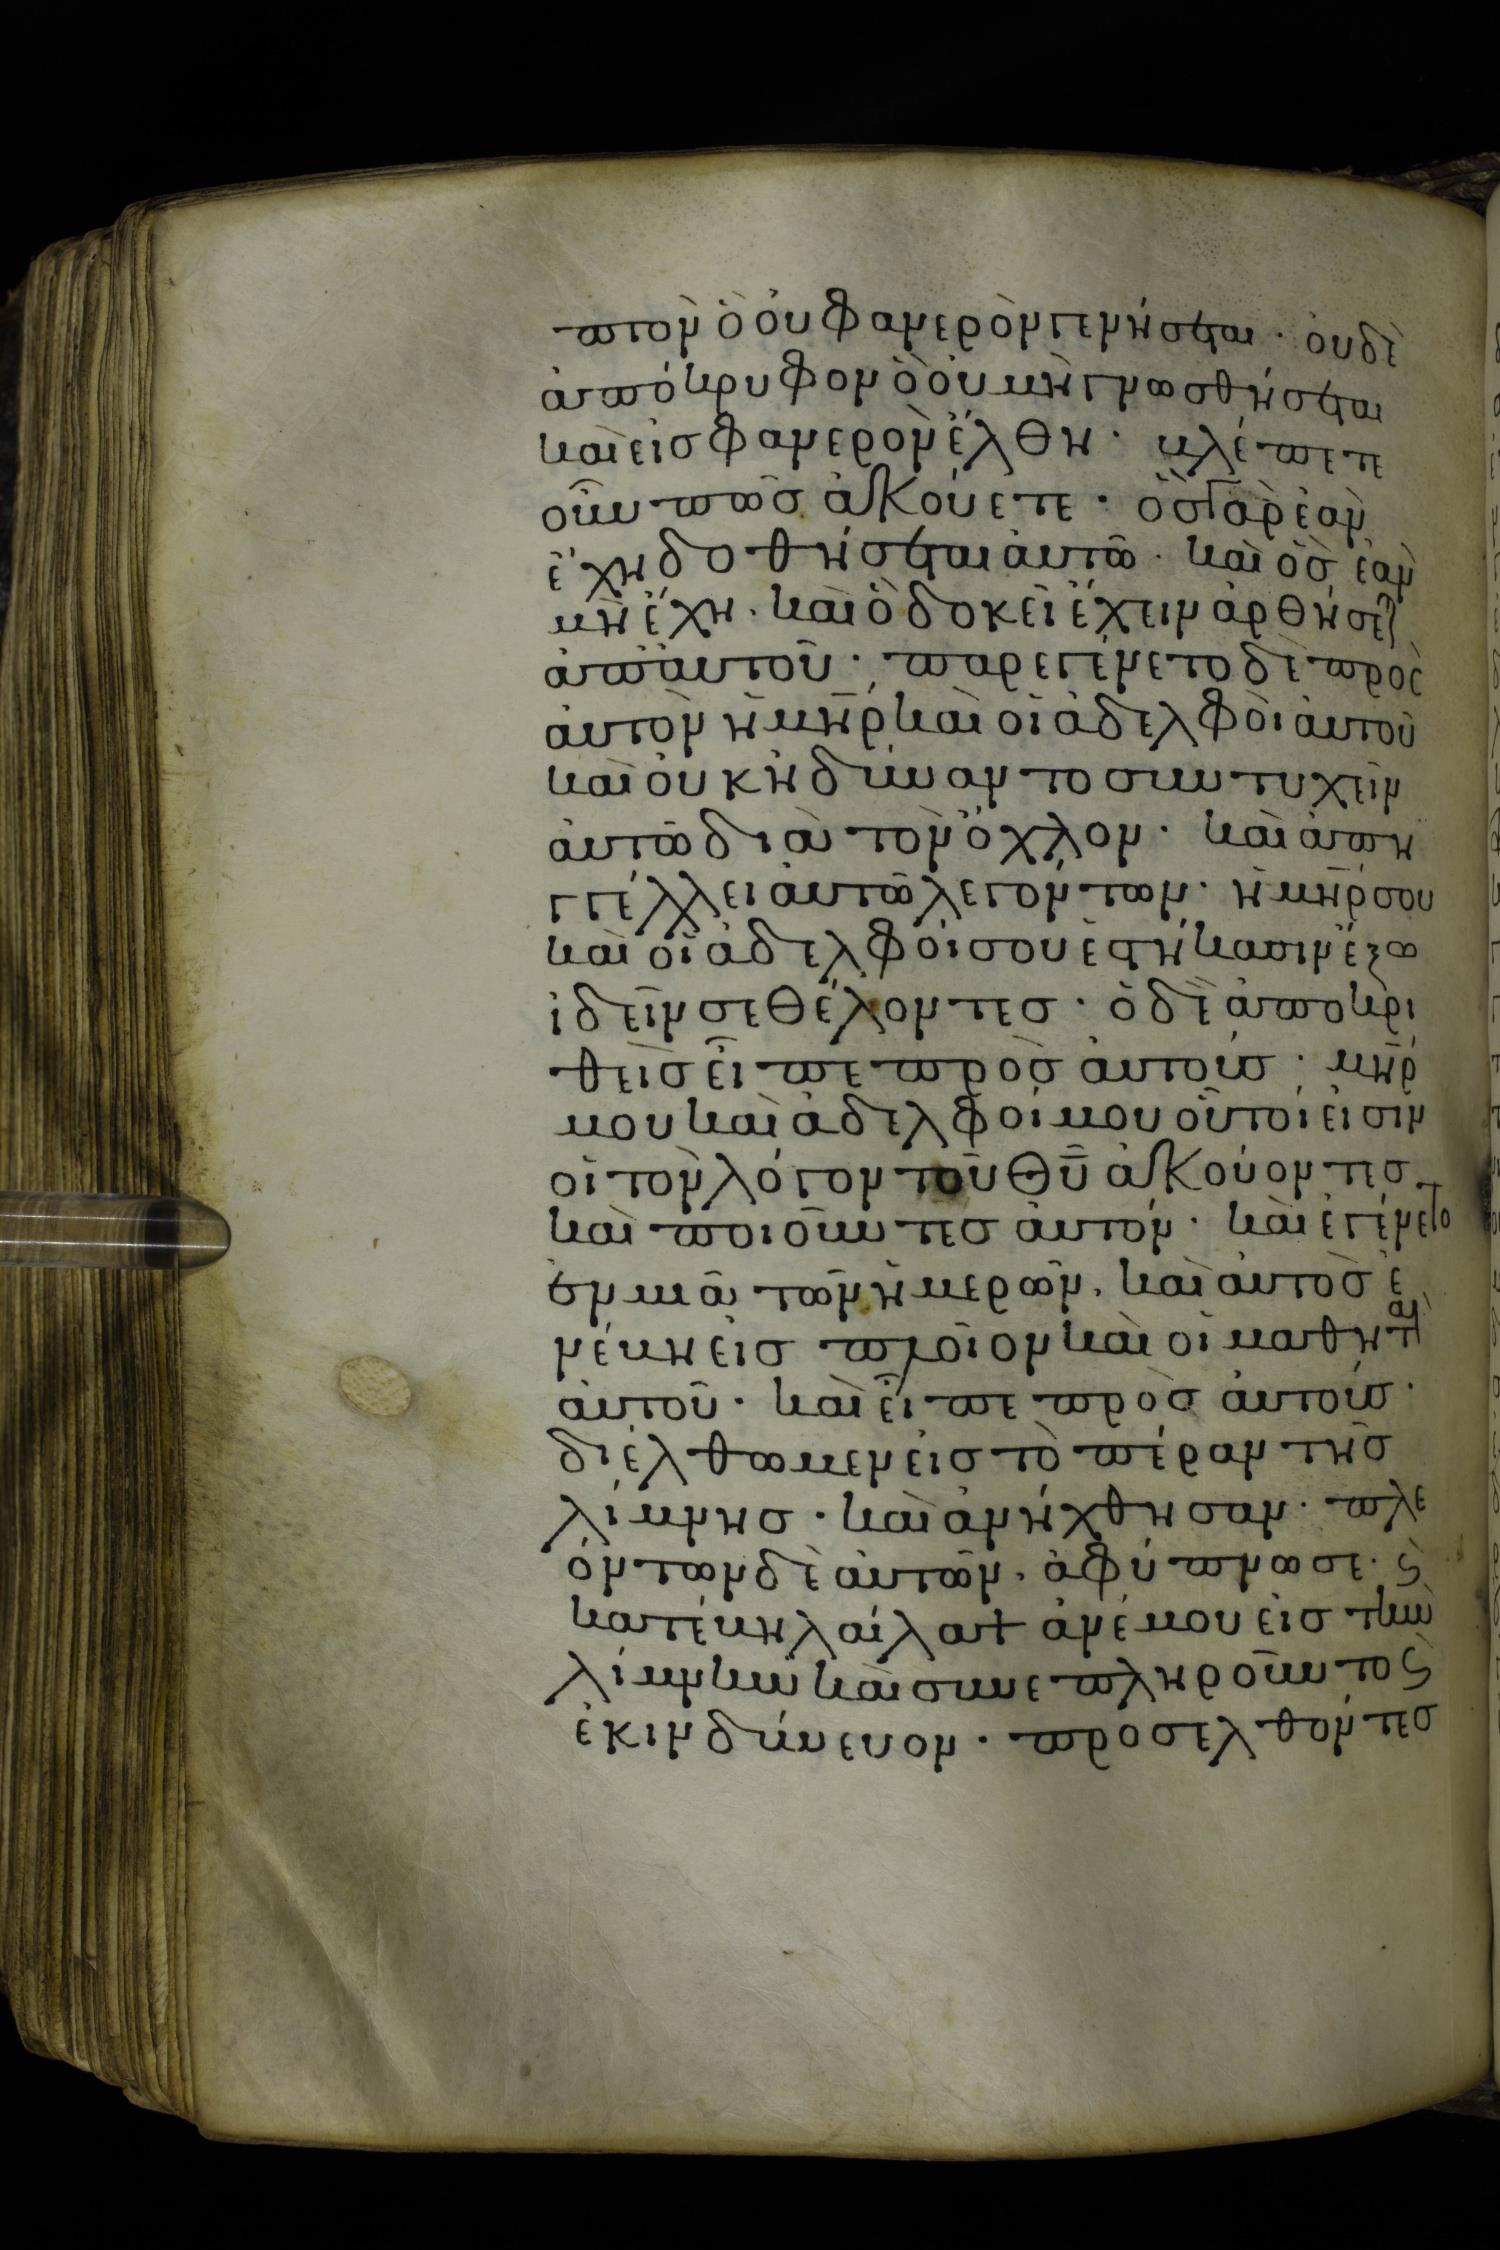 πτὸν ὃ οὐ φανερὸν γενήσεται · οὐδὲ
ἀπόκρυφον ὃ οὐ μὴ γνωσθήσεται
καὶ εἰσ φανερὸν ἔλθη · βλέπετε
οὖν πῶσ ἀκούετε · ὃσ γὰρ ἐὰν
ἔχη δοθήσεται αὐτῶ · καὶ ὃσ ἐὰν
μὴ ἔχη · καὶ ὃ δοκεῖ ἔχειν ἀρθήσετ(αι)
ἀπ' αὐτοῦ · παρεγένετο δὲ πρὸς
αὐτὸν ἡ μηρ καὶ οἱ ἀδελφοὶ αὐτοῦ
καὶ οὐκ ἠδύναντο συντυχεῖν
αὐτῶ διὰ τὸν ὄχλον · καὶ ἀπη
γγέλλει αὐτῶ λεγόντων · ἡ μηρ σου
καὶ οἱ ἀδελφοί σου ἑστήκασιν ἔξω
ἰδεῖν σε θέλοντεσ · ὁ δὲ ἀποκρι
θεὶσ εἶπε πρὸσ αὐτούσ · μηρ
μου καὶ ἀδελφοί μου οὗτοί εἰσιν
οἱ τὸν λόγον τοῦ θυ ἀκούοντεσ
καὶ ποιοῦντεσ αὐτόν · καὶ ἐγένετο
ἐν μιᾶ τῶν ἡμερῶν · καὶ αὐτὸσ ἐ
νέβη εἰσ πλοῖον καὶ οἱ μαθηταὶ
αὐτοῦ · καὶ εἶπε πρὸσ αὐτούσ ·
διέλθωμεν εἰσ τὸ πέραν τῆσ
λίμνησ · καὶ ἀνήχθησαν · πλε
όντων δὲ αὐτῶν · ἀφύπνωσε · ϛ
κατέβη λαίλαψ ἀνέμου εἰσ τὴν
λίμνην καὶ συνεπληροῦντο ϛ
ἐκινδύνευον · προσελθόντεσ